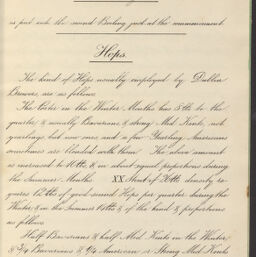 is put into the second Boiling just at the commencement
Hops.
The kind of Hops usually employed by Dublin
Brewers, are as follows
The Porter in the Winter Months has 8 lb to the
quarter & usually Bavarians & strong Mid Kents, not
yearlings but new ones and a few Yearling Americans
sometimes are blended with them. The above amount
is increased to 10 lbs, & in about equal proportions during
the Summer Months XX Stout of 26 lbs density re-
quires 12 lbs of good sound Hops per quarter during the
Winter, & in the Summer 14 lbs & of the kind & proportions
as follows
Half Bavarians & half Mid Kents in the Winter
& 3/4 Bavarians & 1/4 American or Strong Mid Kents